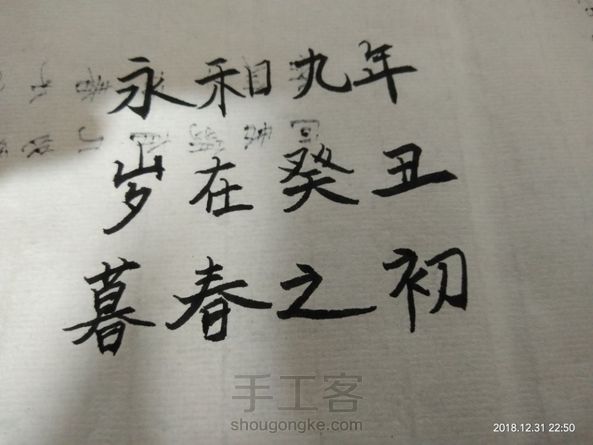 永和九年
岁在癸丑
暮春之初
手工客
shougongke.com
2018.12.31 22:50